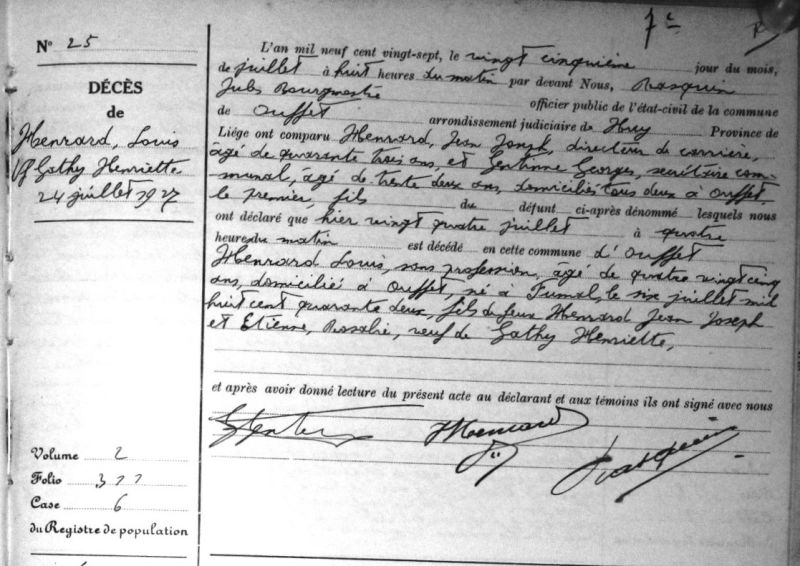 7e
N° 25
DÉCÈS
de
Henrard, Louis
Vf Gathy Henriette
24 juillet 1927
Volume 2
Folio 377
Case 6
du Registre de population
L'an mil neuf cent vingt-sept, le vingt cinquième jour du mois,
de juillet à huit heures du matin par devant Nous, Rasquin
Jules Bourgmestre officier public de l'état-civil de la commune
de Ouffet arrondissement judiciaire de Huy Province de
Liége ont comparu Henrard, Jean Joseph, directeur de carrière,
âgé de quarante trois ans, et Georges, secrétaire com-
munal, âgé de trente deux ans, domiciliés tous deux à Ouffet,
le premier, fils du défunt ci-après dénommé lesquels nous
ont déclaré que hier vingt quatre juillet à quatre
heures du matin est décédé en cette commune d'Ouffet
Henrard Louis, sans profession, âgé de quatre vingt cinq
ans, domicilié à Ouffet, né à Fumal, le six juillet mil
huit cent quarante deux, fils de feux Henrard Jean Joseph
et Etienne, Rosalie, veuf de Gathy Henriette,
et après avoir donné lecture du présent acte au déclarant et aux témoins ils ont signé avec nous
JHenrard